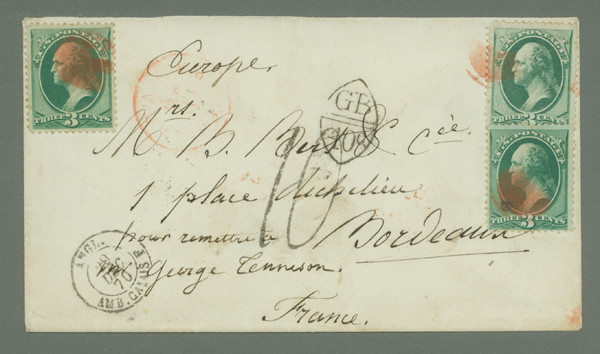 U.S. POSTAGE
THREE 3 CENTS
U.S. POSTAGE
THREE 3 CENTS
U.S. POSTAGE
THREE 3 CENTS
Europe
GB
40c
Mrs. B. & Cée.
10
1 place Richelieu
pour remettre à Bordeaux
ANGL.
DEC
70
AMB. CALAIS
George Tennison.
France.